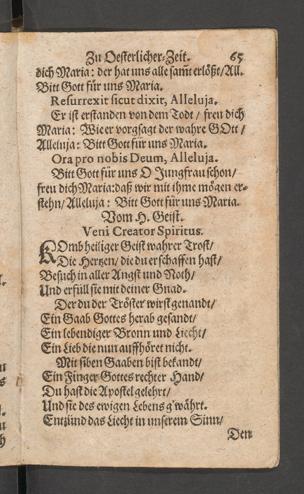 Zu Oesterlicher-Zeit. 65
dich Maria: der hat uns alle sam̃t erlößt/All.
Bitt Gott für uns Maria.
Resurrexit sicut dixit, Alleluja.
Er ist erstanden von dem Todt / freu dich
Maria: Wie er vorgsagt der wahre GOtt /
Alleluja: Bitt Gott für uns Maria.
Ora pro nobis Deum, Alleluja.
Bitt Gott für uns O Jungfrau schon/
freu dich Maria: daß wir mit ihme mögen er-
stehn/ Alleluja: Bitt Gott für uns Maria.
Vom H. Geist.
Veni Creator Spiritus.
KOmb heiliger Geist wahrer Trost/
Die Hertzen/ die du erschaffen hast/
Besuch in aller Angst und Noth/
Und erfüll sie mit deiner Gnad.
Der du der Tröster wirst genandt/
Ein Gaab Gottes herab gesandt/
Ein lebendiger Bronn und Liecht/
Ein Lieb die nun auffhöret nicht.
Mit siben Gaaben bist bekandt/
Ein Finger Gottes rechter Hand/
Du hast die Apostel gelehrt/
Und sie des ewigen Lebens g'währt.
Entzünd das Liecht in unserem Sinn/
Den